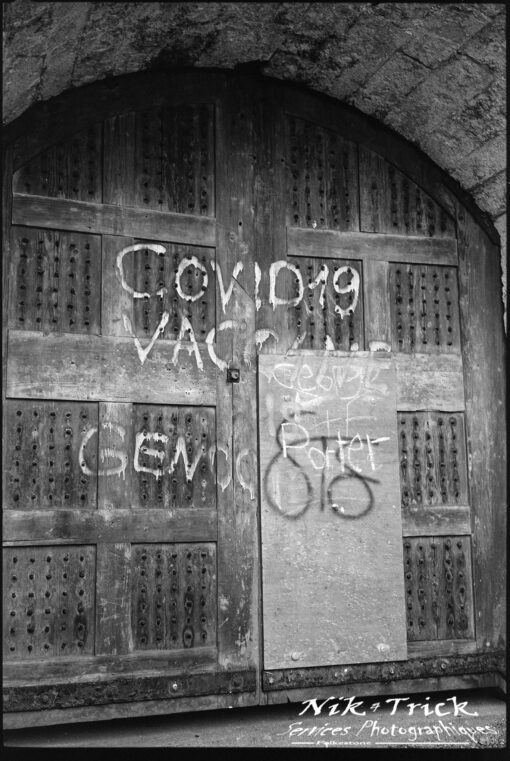 COVID19
VAC
GENOC
George
Potter
Nik & Trick
Services Photographiques
Folkestone